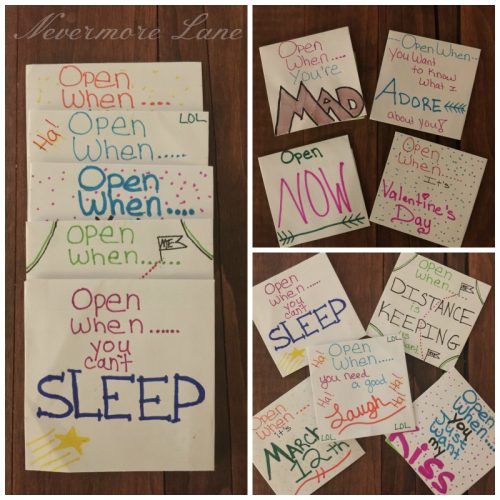 Nevermore Lane
Open
When....
Ha!
Open
When.....
LOL
Open
When....
Open
When......
ME
Open
When......
you
can't
SLEEP
Open
When....
you're
MAD
Open When
You Want
to Know
What I
ADORE
about you!
Open
NOW
Open
When.....
It's
Valentine's
Day
Open
When......
you
can't
SLEEP
Open
When....
DISTANCE
is
KEEPING
Ha!
Open
When....
you need
a good
Laugh
Ha!
Ha!
Ha!
LOL
Open
When....
it's
March
12th
LOL
Open
When
you
just
want
my
Kiss